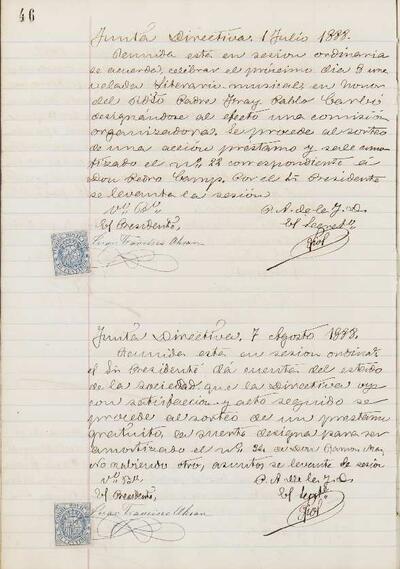 46
Junta Directiva, 1 Julio 1888.
Reunida esta en sesion ordinaria
se acuerda, celebrar el próximo dia 8 una
velada Literario musical, en honor
del Rdo Padre Fray Pablo Carbó
designándose al efecto una comisión
organizadora. Se procede al sorteo
de una acción préstamo y sale amor
tizado el nº 22 correspondiente á
Don Pedro Camp. Por el Sr Presidente
se levanta la sesión.
Vº Bº P. A. de la J. D.
El Presidente, El Secretº
Francisco
Junta Directiva, 7 Agosto 1888.
Reunida esta en sesion ordinaª
el Sr Presidente dá cuenta del estado
de la sociedad, que la Directiva oye
con satisfaccion y acto seguido se
procede al sorteo de un préstamo
gratuito, la suerte designa para ser
amortizado el nº de Don Ramon
No habiendo otros asuntos se levanta la sesión
Vº Bº P. A. de la J. D.
El Presidente, El Secretº
Francisco